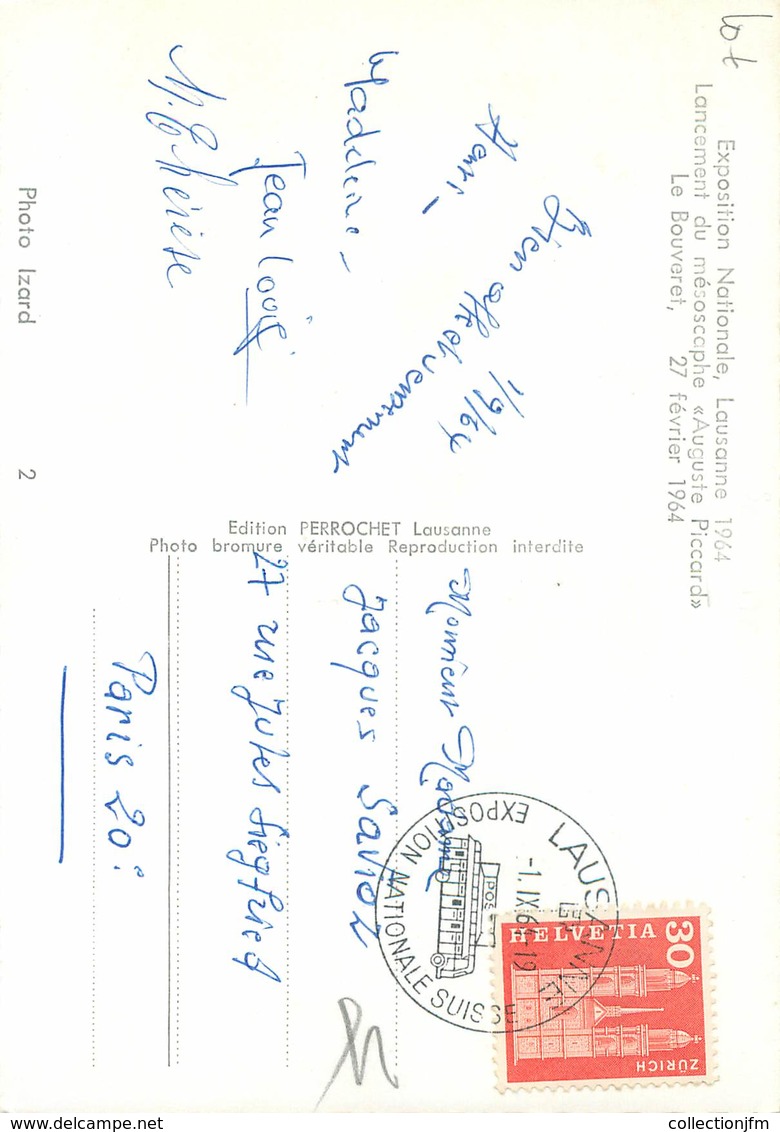 lot
Exposition Nationale, Lausanne 1964
Lancement du mésoscaphe «Auguste Piccard»
Le Bouveret, 27 février 1964
1/9/64
Bien affectueusement
Henri -
Madeleine -
Jean Louis
M. Thérèse
Photo Izard 2
Edition PERROCHET Lausanne
Photo bromure véritable Reproduction interdite
Monsieur Madame
Jacques
27 rue Jules Siegfried
Paris 20:
LAUSANNE
-1.IX.64-12
EXPOSITION NATIONALE SUISSE
POST
HELVETIA
30
ZÜRICH
www.delcampe.net
collectionjfm